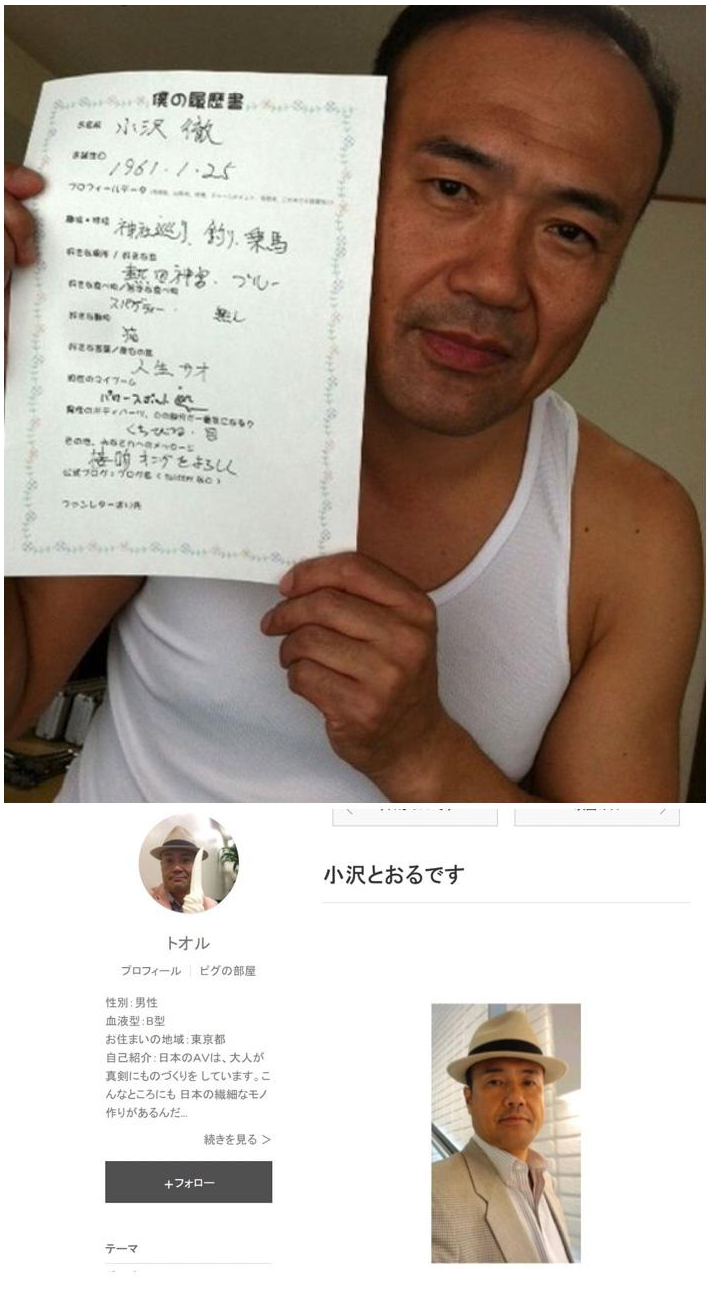 僕の履歴書
お名前 小沢 徹
お誕生日 1961.1.25
プロフィールデータ
趣味・特技 神社巡り、釣り、乗馬
好きな場所 / 好きな色
熱田神宮. ブルー
好きな食べ物/苦手な食べ物
スパゲティー. 無し
好きな動物
猫
好きな言葉/座右の銘
人生サオ
最近のマイブーム
パワースポット
異性のボディパーツ、どの部分が一番気になる?
くちびる・
その他、みなさんへのメッセージ
をよろしく
公式ブログ:ブログ名( twitter など )
ファンレター送り先
トオル
プロフィール
ピグの部屋
性別:男性
血液型:B型
お住まいの地域:東京都
自己紹介:日本のAVは、大人が
真剣にものづくりを しています。こ
んなところにも 日本の繊細なモノ
作りがあるんだ...
続きを見る >
+フォロー
テーマ
小沢とおるです